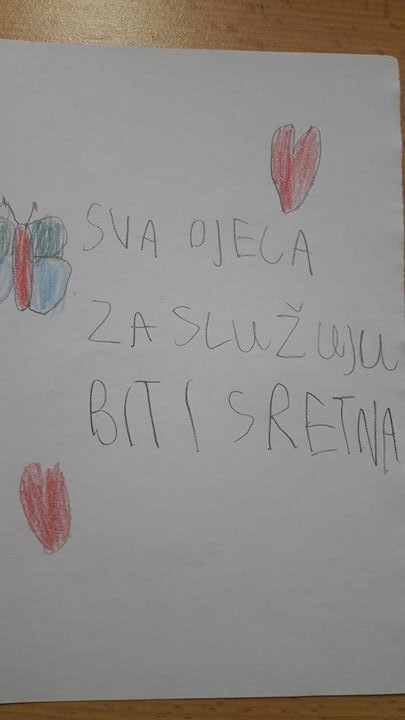 SVA DJECA
ZASLUŽUJU
BITI SRETNA